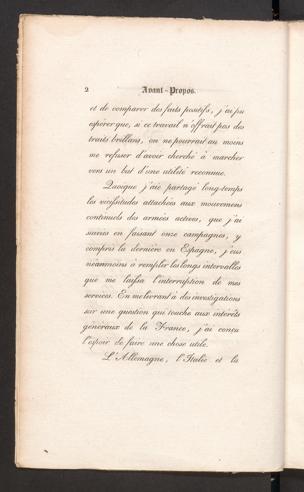 2 Avant-Propos.
et de comparer des faits positifs, j'ai pu
espérer que, si ce travail n'offrait pas des
traits brillans, on ne pourrait au moins
me refuser d'avoir cherché à marcher
vers un but d'une utilité reconnue.
Quoique j'aie partagé long-temps
les vicissitudes attachées aux mouvemens
continuels des armées actives, que j'ai
suivies en faisant onze campagnes, y
compris la dernière en Espagne, j'eus
néanmoins à remplir les longs intervalles
que me laissa l'interruption de mes
services. En me livrant à des investigations
sur une question qui touche aux intérêts
généraux de la France, j'ai conçu
l'espoir de faire une chose utile.
L'Allemagne, l'Italie et la